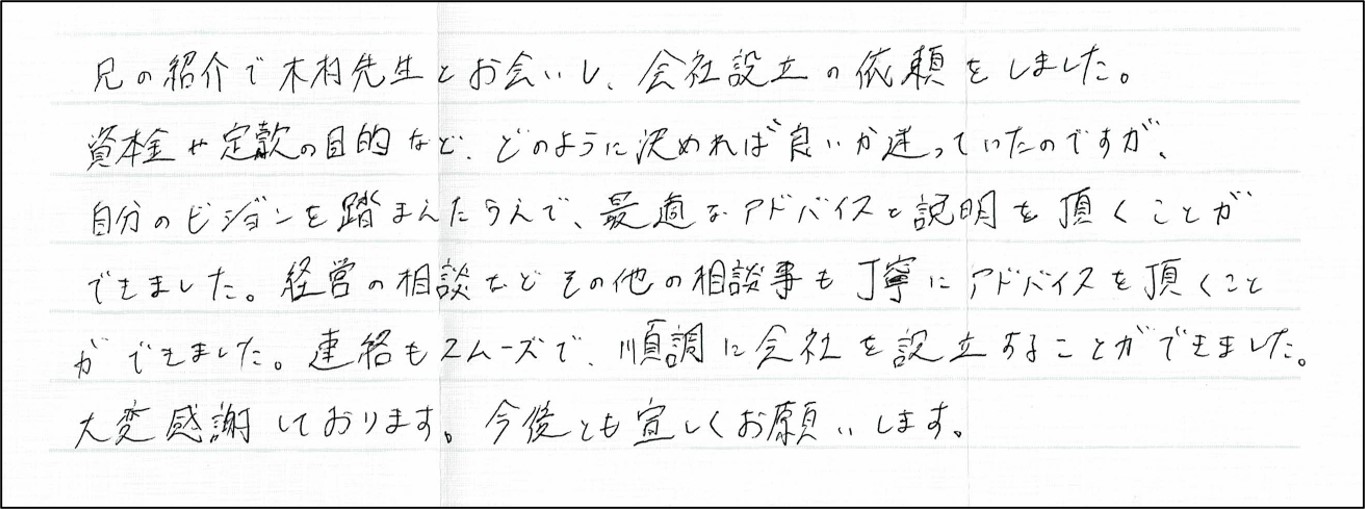 兄の紹介で木村先生とお会いし、会社設立の依頼をしました。
資本金や定款の目的など、どのように決めれば良いか迷っていたのですが、
自分のビジョンを踏まえたうえで、最適なアドバイスと説明を頂くことが
できました。経営の相談などその他の相談事も丁寧にアドバイスを頂くこと
ができました。連絡もスムーズで、順調に会社を設立することができました。
大変感謝しております。今後とも宜しくお願いします。